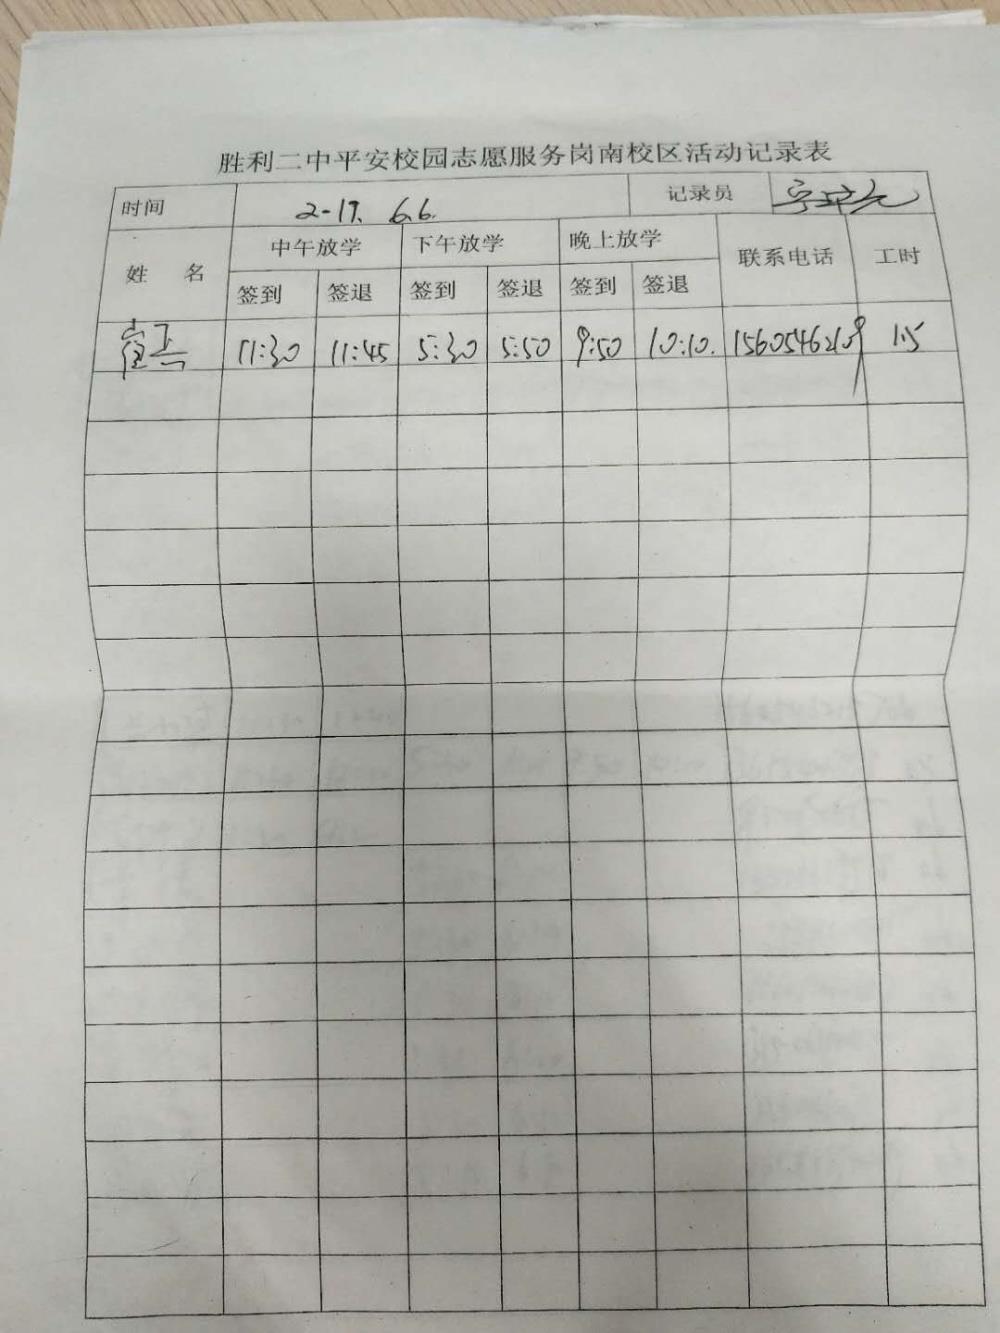 胜利二中平安校园志愿服务岗南校区活动记录表
时间 2-17. 6.6. 记录员
姓 名 中午放学 下午放学 晚上放学 联系电话 工时
签到 签退 签到 签退 签到 签退
11:30 11:45 5:30 5:50 9:50 10:10. 1.5